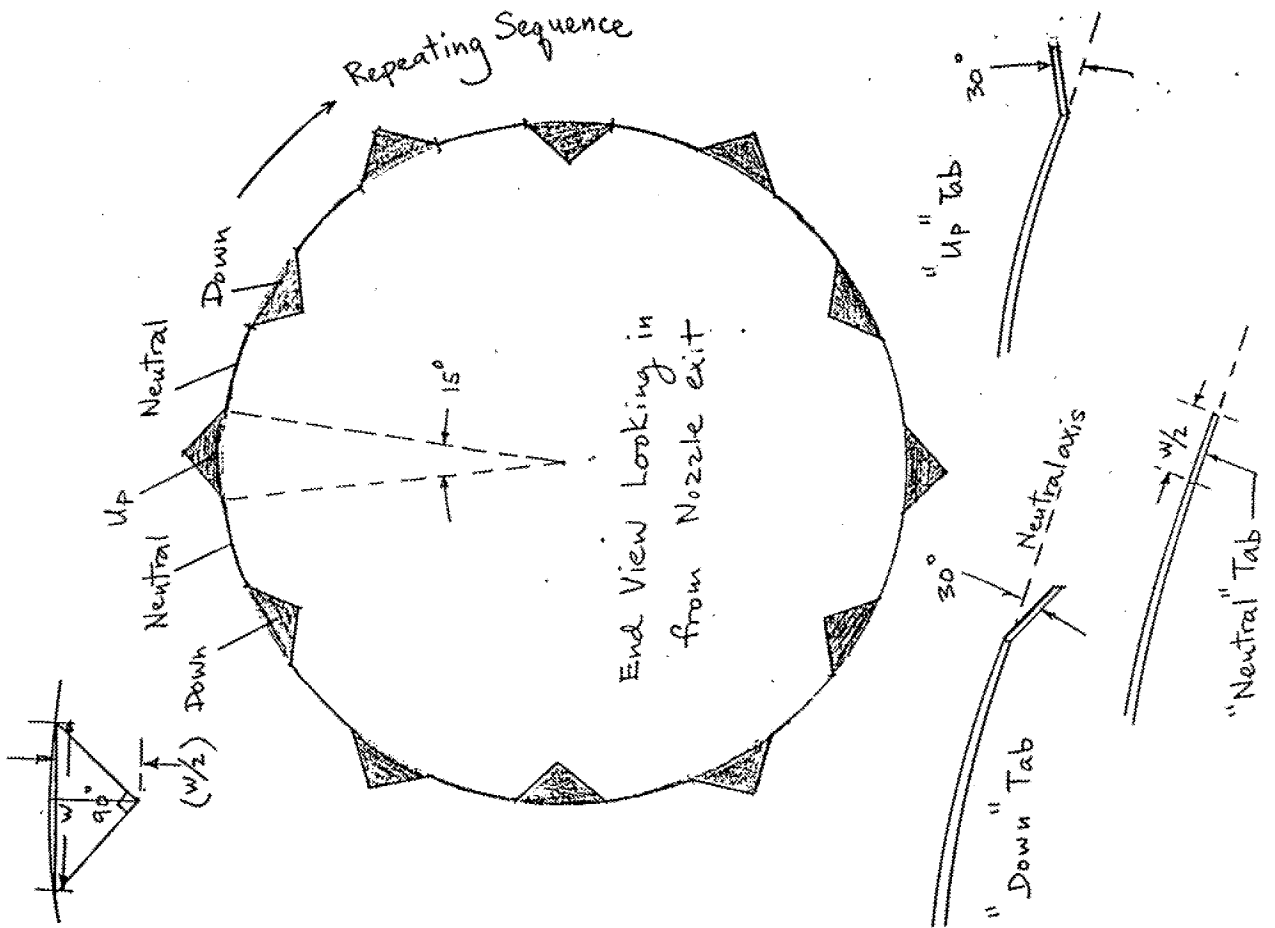 Repeating Sequence
Neutral
Down
Up
Neutral
15°
W
90°
(W/2)
Down
End View Looking in
from Nozzle exit
30°
"Up" Tab
30°
Neutral axis
W/2
"Down" Tab
"Neutral" Tab